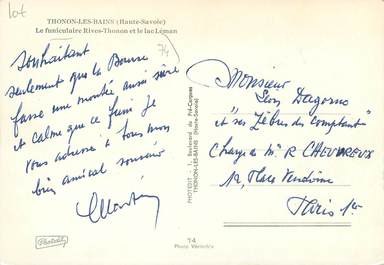 lot
THONON-LES-BAINS (Haute-Savoie)
Le funiculaire Rives-Thonon et le lac Léman
74
Souhaitant
seulement que la Bourse
fasse une montée aussi sûre
et calme que ce funi Je
vous adresse à tous mon
bien amical souvenir
PHOTEDIT - 1, Boulevard du Pré-Cergues
THONON-LES-BAINS (Haute-Savoie)
Monsieur
Léon Dagorno
et "ses Zèbres du Comptant"
Charge de Mr R CHEUVREUX
12, Place Vendôme
Paris 1er
Photedit
74
Photo Véritable